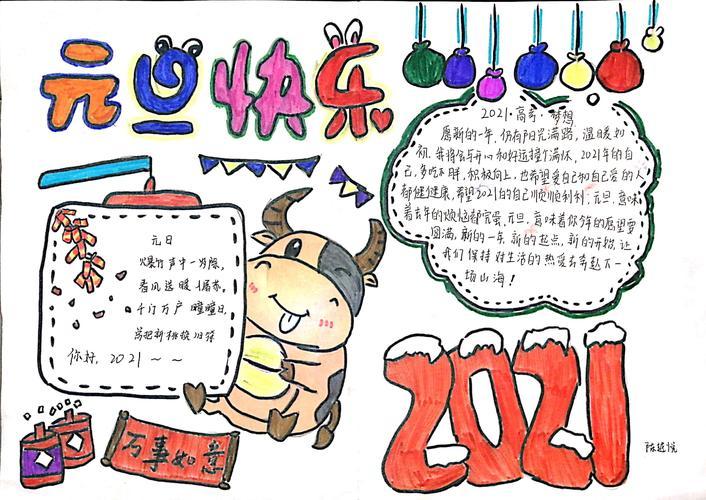 元旦快乐
2021·高考·梦想
愿新的一年，仍有阳光满路，温暖如
初。我将会与开心和好运撞个满怀，2021年的自
己，多吃不胖，积极向上，也希望爱自己和自己爱的人
都健健康，希望2021的自己顺顺利利；元旦，意味
着去年的烦恼都完蛋，元旦，意味着你今年的愿望要
圆满，新的一年，新的起点，新的开始，让
我们保持对生活的热爱去奔赴下一
场山海！
元日
爆竹声中一岁除，
春风送暖入屠苏，
千门万户曈曈日，
总把新桃换旧符
你好，2021～～
万事如意
2021